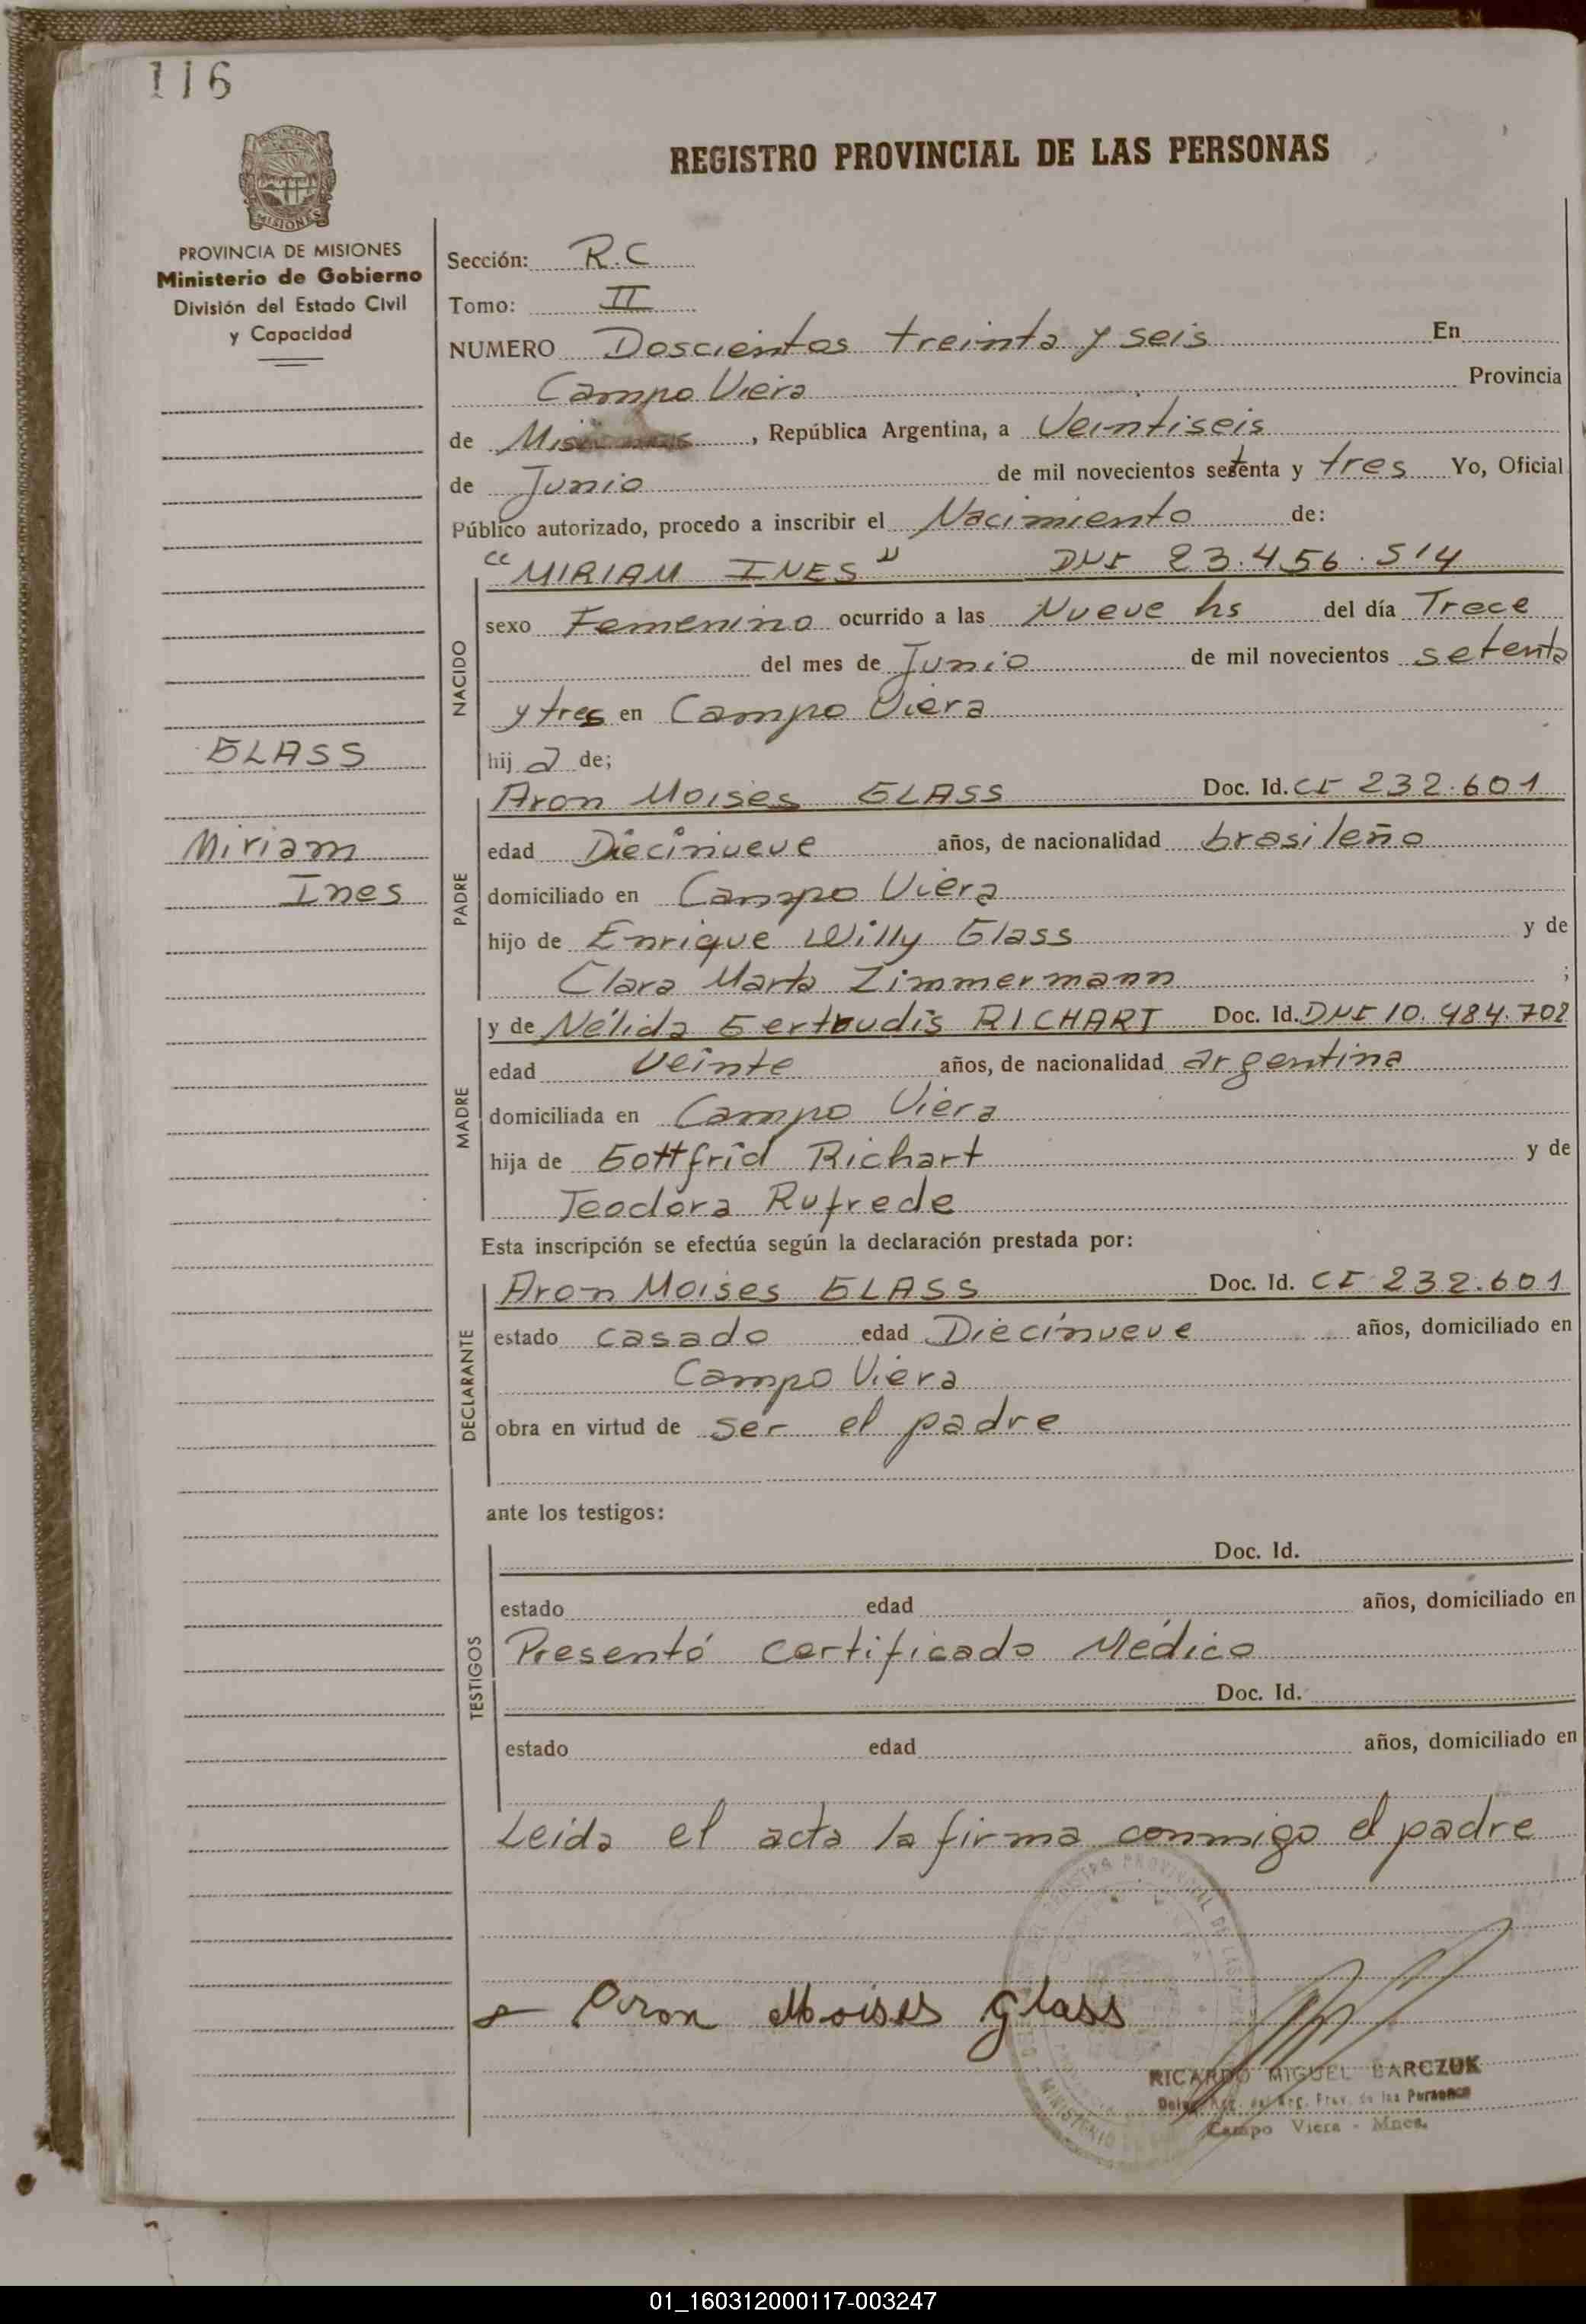 116
REGISTRO PROVINCIAL DE LAS PERSONAS
PROVINCIA DE MISIONES
Ministerio de Gobierno
División del Estado Civil
y Capacidad
GLASS
Miriam
Ines
Sección: R.C
Tomo: II
NUMERO Doscientos treinta y seis En
Campo Viera Provincia
de Misiones, República Argentina, a Veintiseis
de Junio de mil novecientos setenta y tres Yo, Oficial
Público autorizado, procedo a inscribir el Nacimiento de:
NACIDO
"MIRIAM INES" DNI 23.456.514
sexo Femenino ocurrido a las Nueve hs del día Trece
del mes de Junio de mil novecientos setenta
y tres en Campo Viera
hija de;
PADRE
Aron Moises GLASS Doc. Id. CI 232.601
edad Diecinueve años, de nacionalidad brasileño
domiciliado en Campo Viera
hijo de Enrique Willy Glass y de
Clara Marta Zimmermann ;
MADRE
y de Nélida Gertrudis RICHART Doc. Id. DNI 10.984.702
edad Veinte años, de nacionalidad argentina
domiciliada en Campo Viera
hija de Gottfrid Richart y de
Teodora Rufrede
Esta inscripción se efectúa según la declaración prestada por:
DECLARANTE
Aron Moises GLASS Doc. Id. CI 232.601
estado casado edad Diecinueve años, domiciliado en
Campo Viera
obra en virtud de ser el padre
ante los testigos:
TESTIGOS
Doc. Id.
estado edad años, domiciliado en
Presentó certificado Médico
Doc. Id.
estado edad años, domiciliado en
Leída el acta la firma conmigo el padre
Aron Moises Glass
RICARDO MIGUEL BARCZUK
Prov. de las Personas
Campo Viera - Mnes.
01_160312000117-003247